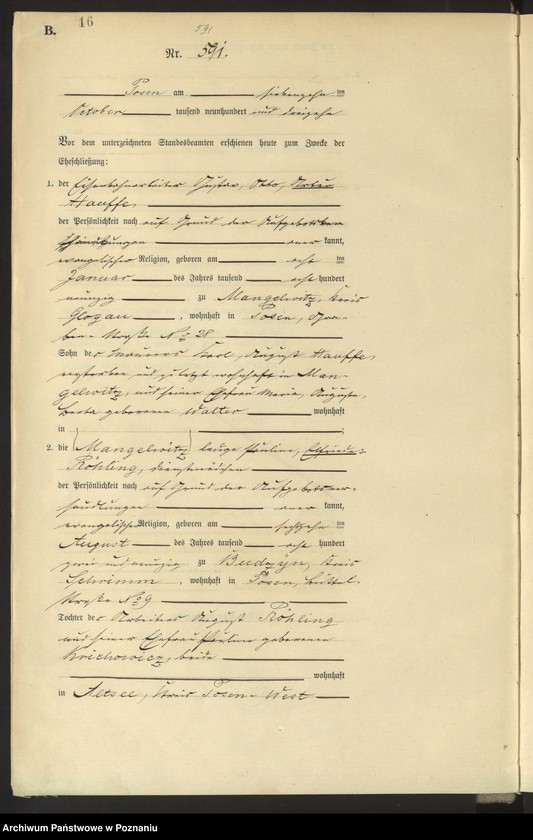 B. 16
591
Nr. 591.
Posen am siebenzehn ten
October tausend neunhundert und dreizehn
Vor dem unterzeichneten Standesbeamten erschienen heute zum Zwecke der
Eheschließung:
1. der Eisenbahnarbeiter Gustav, Otto,
Hauffe,
der Persönlichkeit nach auf Grund der Aufgebotsver
handlungen aner kannt,
evangelischer Religion, geboren am acht ten
Januar des Jahres tausend acht hundert
neunzig zu Mangelwitz, Kreis
Glogau, wohnhaft in Posen,
No 28
Sohn des Maurers Karl, August Hauffe,
verstorben und zuletzt wohnhaft in Man-
gelwitz, und seiner Ehefrau Maria, Auguste,
Berta geborenen Walter wohnhaft
in Mangelwitz
2. die ledige Pauline, Elfriede
Röhling, Dienstmädchen
der Persönlichkeit nach auf Grund der Aufgebotsver-
handlungen aner kannt,
evangelischer Religion, geboren am sechzehn ten
August des Jahres tausend acht hundert
zwei und neunzig zu Budzyn, Kreis
Schrimm, wohnhaft in Posen,
No 9
Tochter des Arbeiters August Röhling
und seiner Ehefrau Pauline geborenen
Krichowicz, beide
wohnhaft
in Altsee, Kreis Posen-West
Archiwum Państwowe w Poznaniu